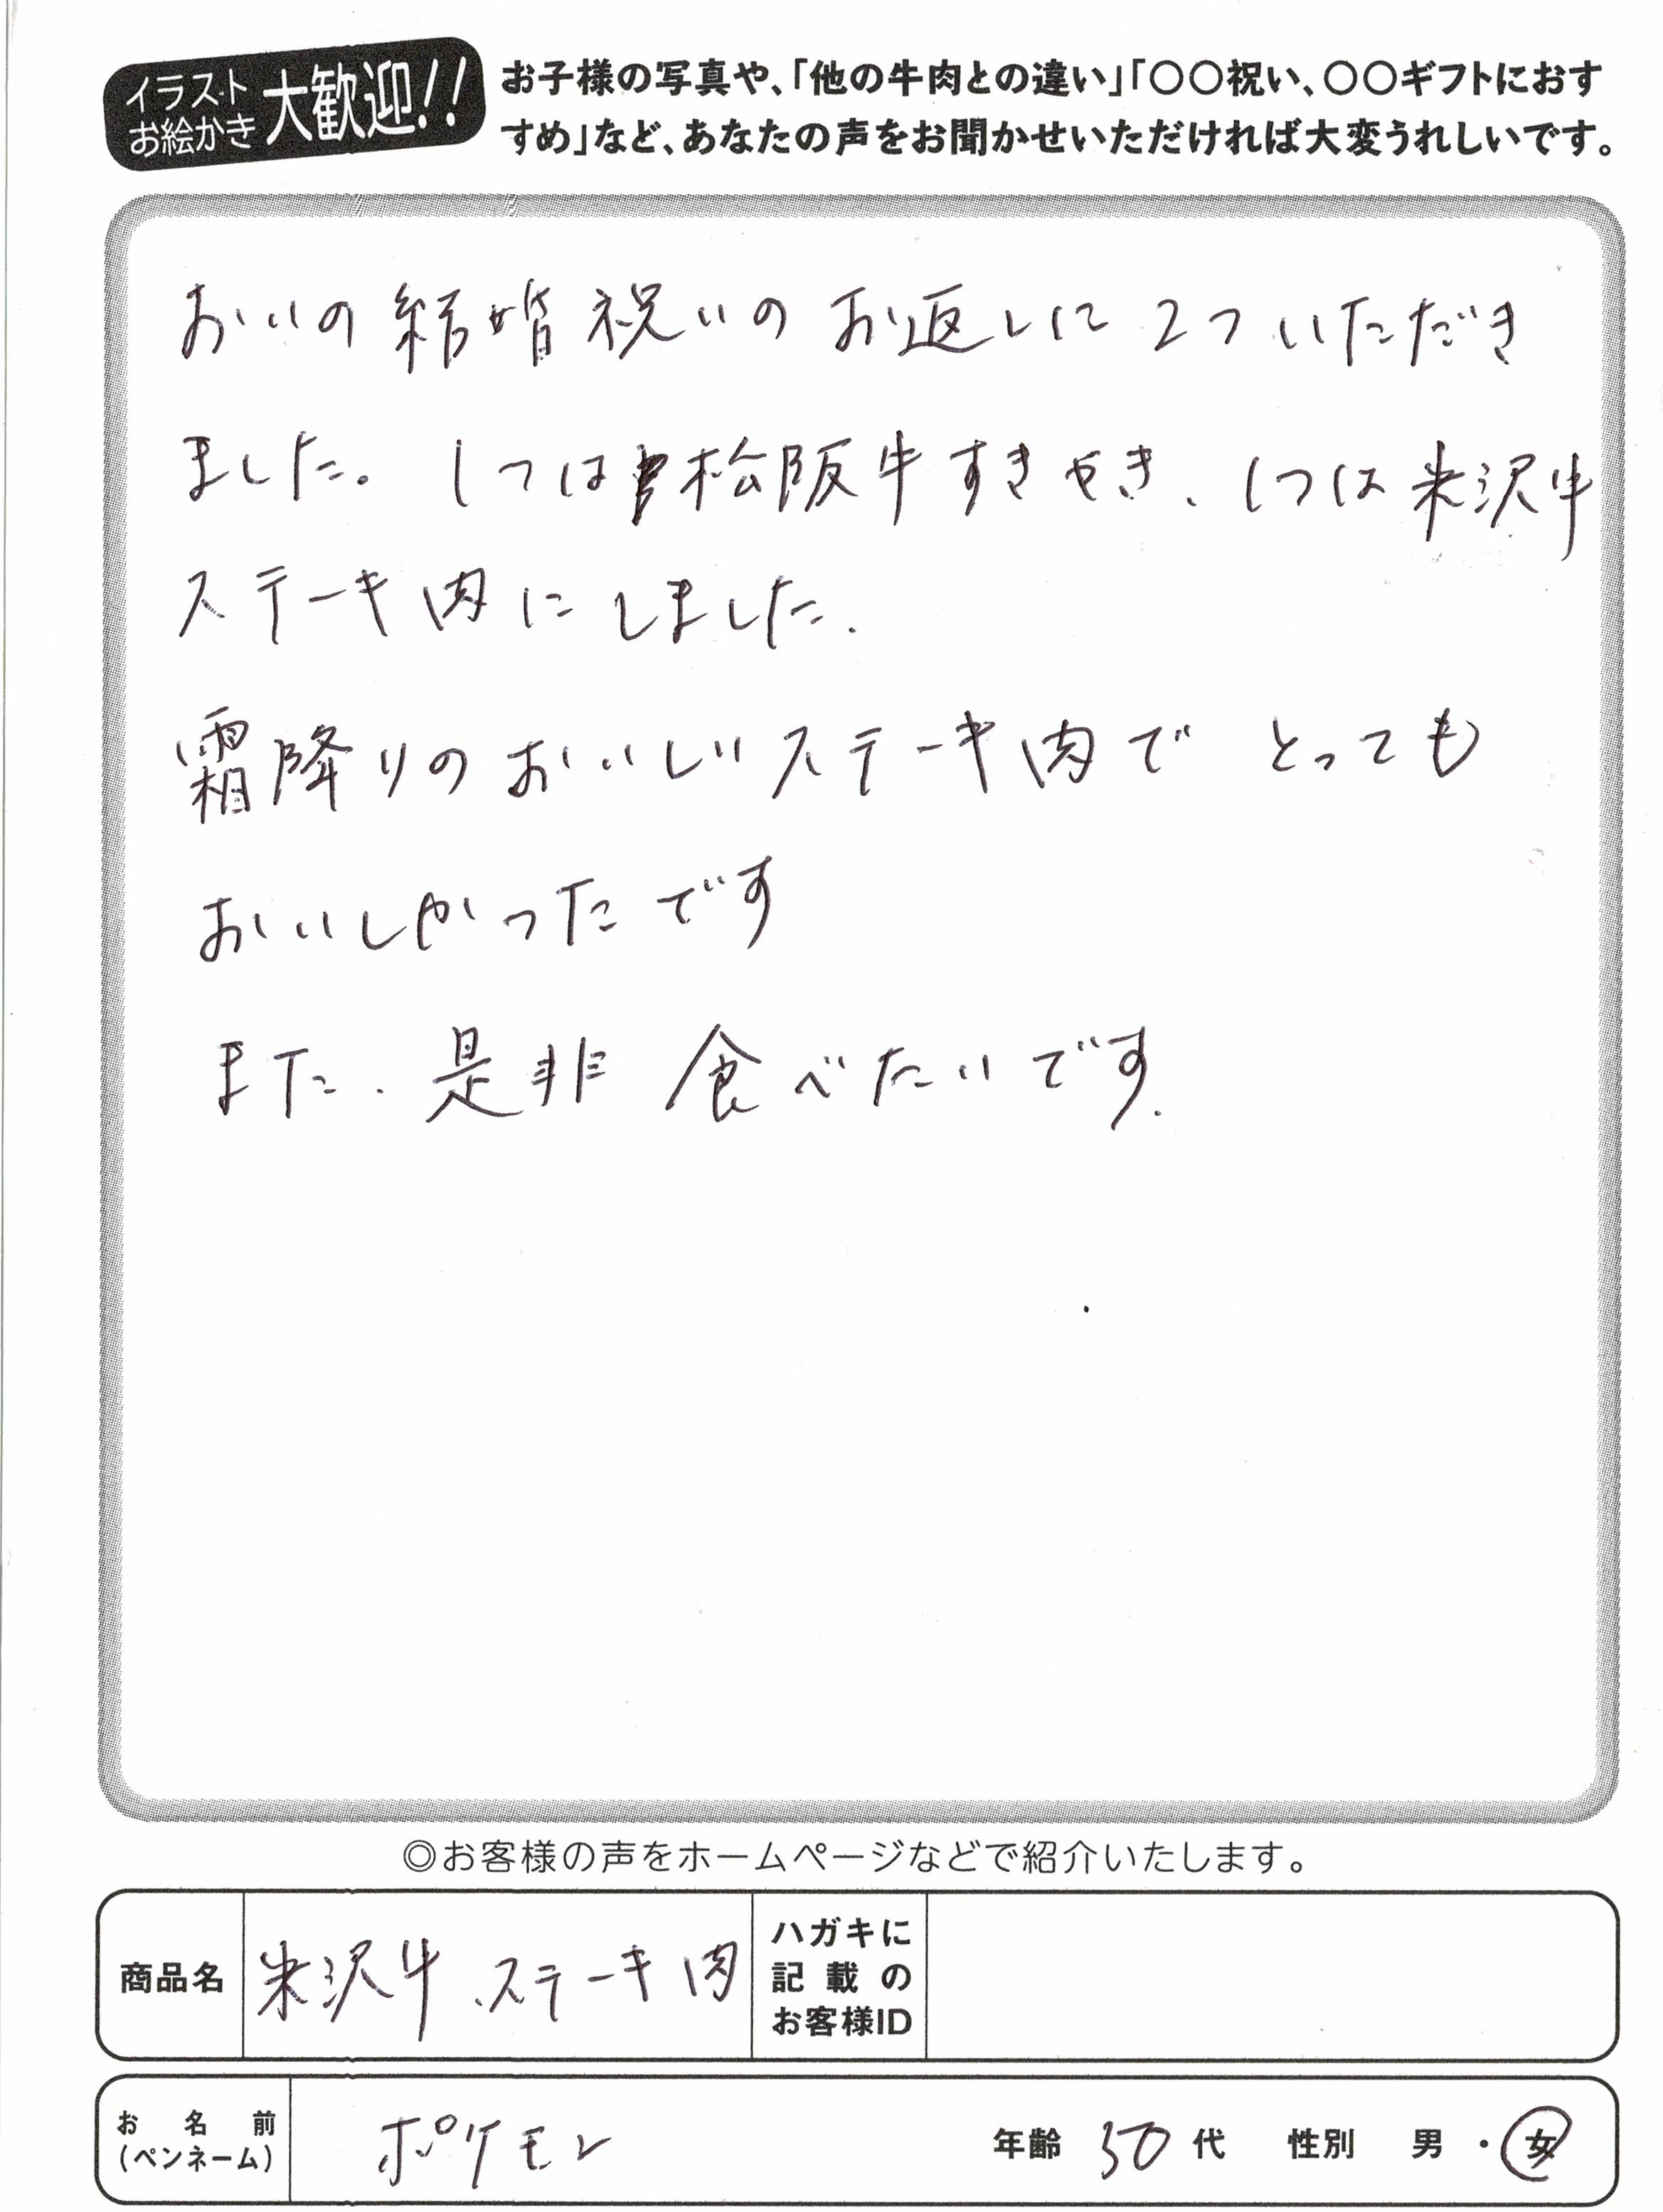 イラスト
お絵かき
大歓迎!!
お子様の写真や、「他の牛肉との違い」「〇〇祝い、〇〇ギフトにおす
すめ」など、あなたの声をお聞かせいただければ大変うれしいです。
おいの結婚祝いのお返しに2ついただき
ました。1つは松阪牛すきやき、1つは米沢牛
ステーキ肉にしました.
霜降りのおいしいステーキ肉で とっても
おいしかったです
また、是非 食べたいです.
◎お客様の声をホームページなどで紹介いたします。
商品名
米沢牛 ステーキ肉
ハガキに
記載の
お客様ID
お名前
(ペンネーム)
ポケモン
年齢 50代 性別 男・女